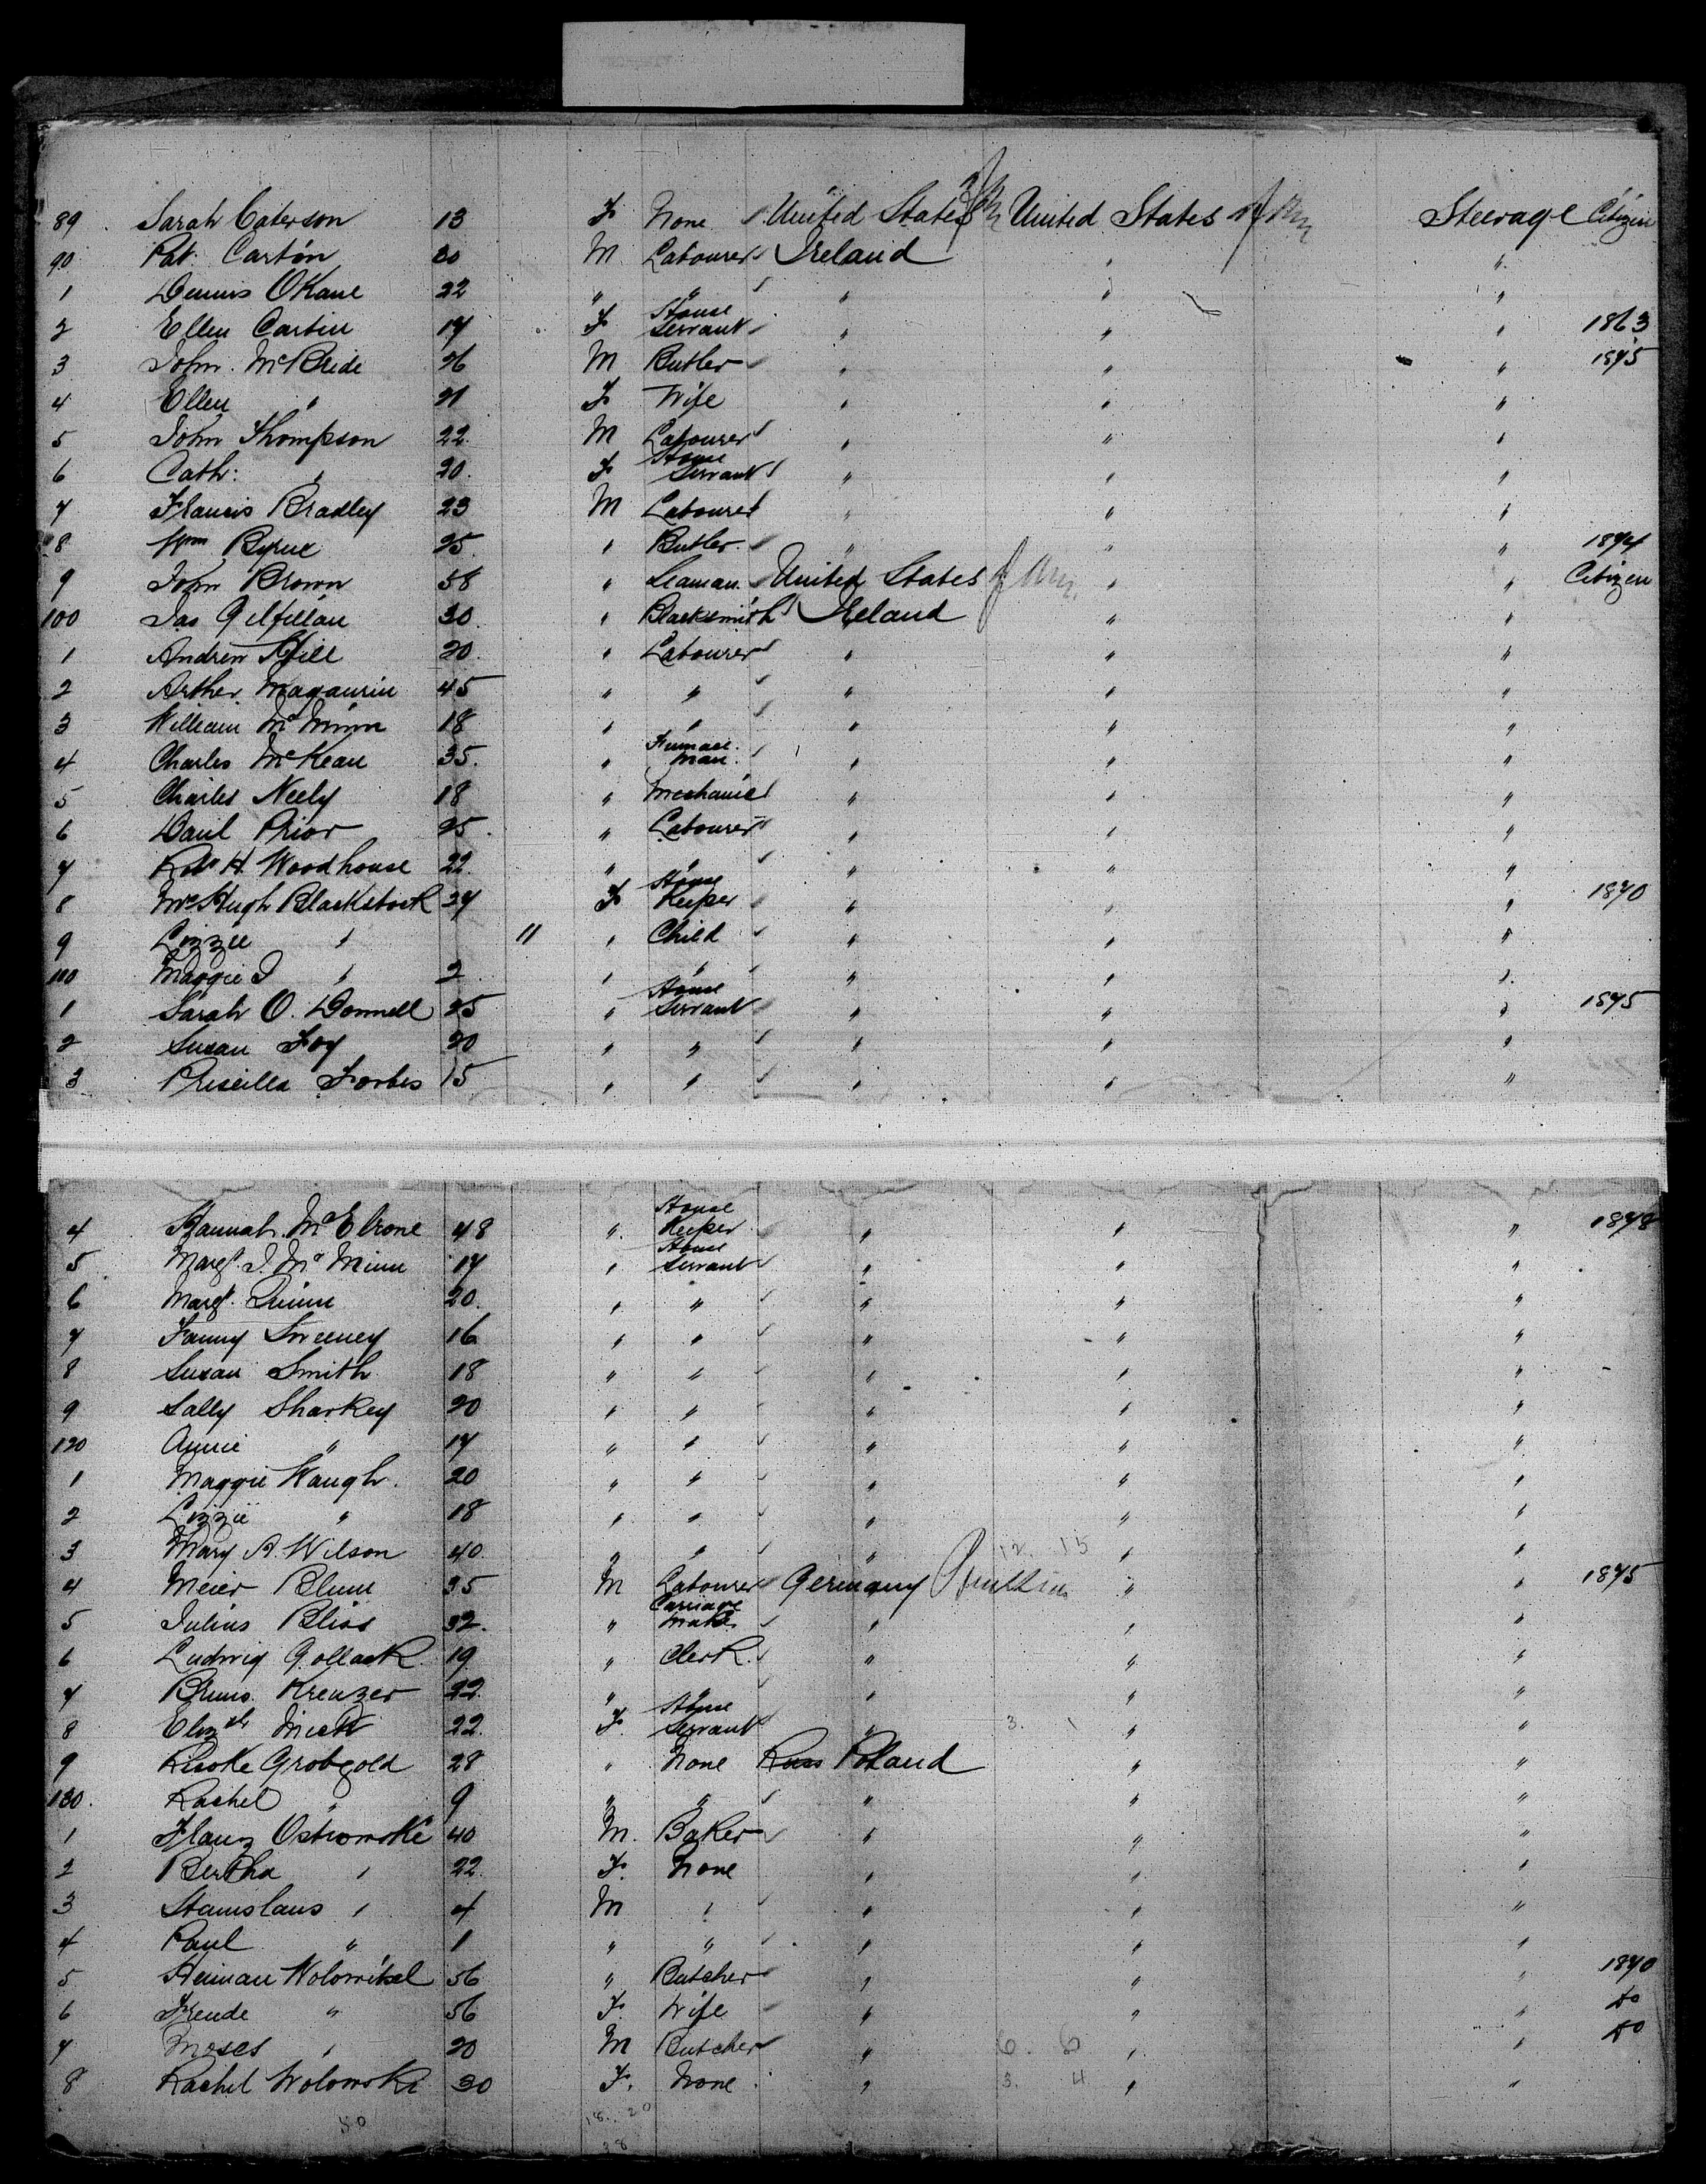 89 Sarah Caterson 13 F None United States United States Steerage Citizen
90 Pat. Cartin 20 M Labourer Ireland " "
1 Dennis OKane 22 " " " " "
2 Ellen Cartin 17 F House Servant " " " 1863
3 John McBride 26 M Butler " " " 1875
4 Ellen " 21 F Wife " " "
5 John Thompson 22 M Labourer " " "
6 Cath: " 20 F House Servant " " "
7 Francis Bradley 23 M Labourer " " "
8 Wm Byrne 25 " Butler " " " 1874
9 John Brown 58 " Seaman United States " " Citizen
100 Jas Gilfillan 30 " Blacksmith Ireland " "
1 Andrew Hill 20 " Labourer " " "
2 Arther Magaurin 45 " " " " "
3 William McMinn 18 " " " " "
4 Charles McKean 35 " Furnace man " " "
5 Charles Neely 18 " Mechanic " " "
6 Danl Prior 25 " Labourer " " "
7 H. Woodhouse 22 " " " " "
8 Mrs Hugh Blackstock 27 F House Keeper " " " 1870
9 Lizzie " 11 " Child " " "
110 Maggie J " 2 " " " " "
1 Sarah O. Donnell 25 " House Servant " " " 1875
2 Susan Foy 20 " " " " "
3 Priscilla Forbes 15 " " " " "
4 Hannah McElrone 48 " House Keeper " " " 1878
5 Margt. J. McMinn 17 " House Servant " " "
6 Margt. Quinn 20 " " " " "
7 Fanny Sweeney 16 " " " " "
8 Susan Smith 18 " " " " "
9 Sally Sharkey 20 " " " " "
120 Annie " 17 " " " " "
1 Maggie Waugh 20 " " " " "
2 Lizzie " 18 " " " " "
3 Mary A. Wilson 40 " " " 12. 15 " "
4 Meier Blum 35 M Labourer Germany Prussia " " 1875
5 Julius Bliss 32 " Carriage Maker " " "
6 Ludwig Gollack 19 " Clerk " " "
7 Bruno Kreuzer 22 " " " " "
8 Elizth Mick 22 F House Servant " 3. 1 " "
9 Grobgold 28 " None Russ Poland " "
130 Rachel " 9 " " " " "
1 Franz Ostrowski 40 M. Baker " " "
2 Bertha " 22 F. None " " "
3 Stanislaus " 4 M " " " "
4 Paul " 1 " " " " "
5 Heiman Wolowitzel 56 " Butcher " " " 1870
6 Freude " 56 F. Wife " " " do
7 Moses " 20 M Butcher " 6. 6 " " do
8 Rachel Wolowski 30 F. None " 3. 4 " "
50 18. 20
38